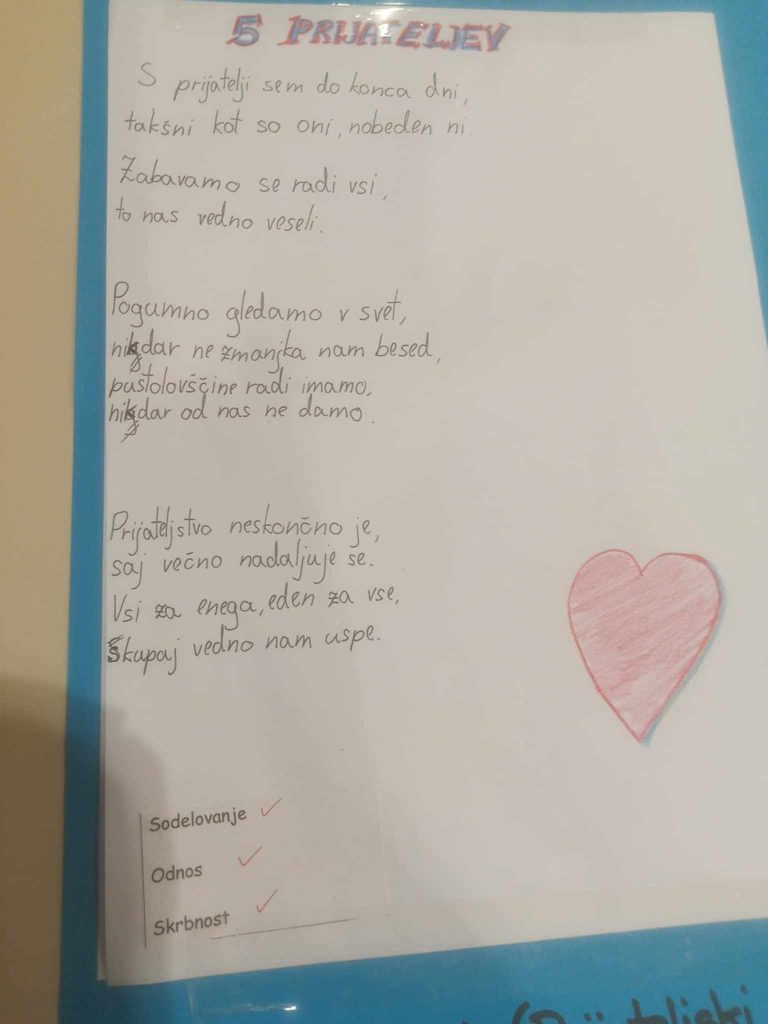 5 PRIJATELJEV
S prijatelji sem do konca dni,
takšni kot so oni, nobeden ni.
Zabavamo se radi vsi,
to nas vedno veseli.
Pogumno gledamo v svet,
nikdar ne zmanjka nam besed,
pustolovščine radi imamo,
nikdar od nas ne damo.
Prijateljstvo neskončno je,
saj večno nadaljuje se.
Vsi za enega, eden za vse,
Skupaj vedno nam uspe.
Sodelovanje ✓
Odnos ✓
Skrbnost ✓